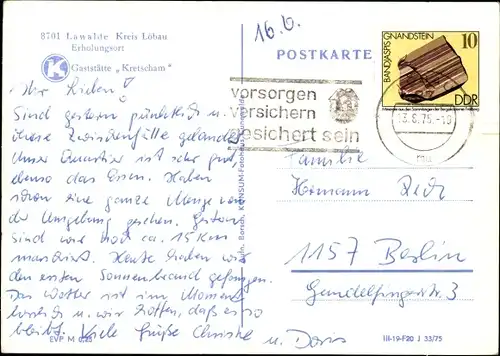 8701 Lawalde Kreis Löbau
Erholungsort
Gaststätte „Kretscham"
K
Ihr Lieben!
Sind gestern pünktlich u.
ohne Zwischenfälle gelandet.
Unser Quartier ist sehr gut,
ebenso das Essen. Haben
schon eine ganze Menge von
der Umgebung gesehen. Gestern
sind wir noch ca. 15 km
marschiert. Heute haben wir
den ersten Sonnenbrand gefangen.
Das Wetter ist im Moment
herrlich u. wir hoffen, daß es so
bleibt. Viele Grüße Christel
u. Doris
EVP M 0,25
16.6.
POSTKARTE
vorsorgen
versichern
gesichert sein
BANDJASPIS GNANDSTEIN
10
DDR
13.6.75.-10
Familie
Hermann
1157 Berlin
3
III-19-F20 J 33/75